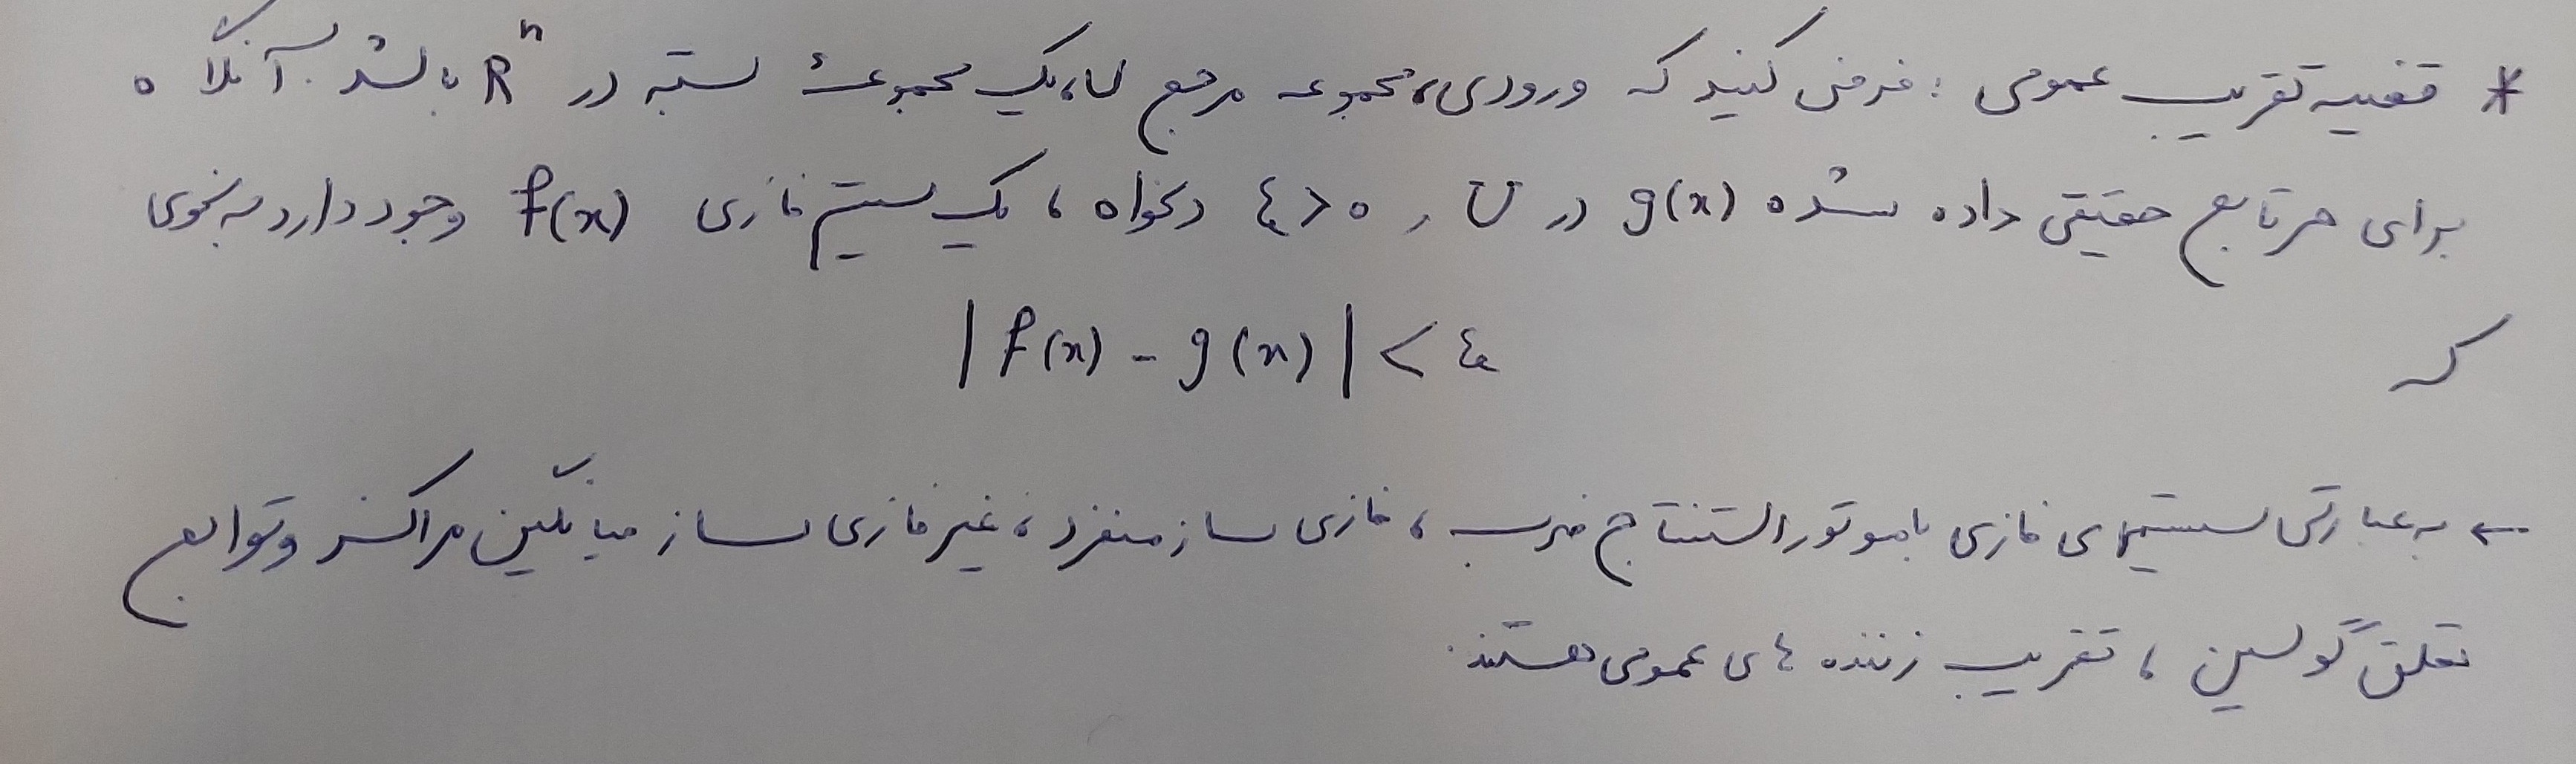 * قضیه تقریب عمومی : فرض کنید که ورودی، مجموعه مرجع U، یک مجموعهٔ بسته در Rⁿ باشد. آنگاه
برای هر تابع حقیقی داده شده g(x) در U و ε > 0 دلخواه، یک سیستم فازی f(x) وجود دارد به نحوی
که | f(x) - g(x) | < ε
← به عبارتی سیستمهای فازی با موتور استنتاج ضرب، فازی ساز منفرد، غیر فازی ساز میانگین مراکز و توابع
تعلق گوسین، تقریب زننده های عمومی هستند.